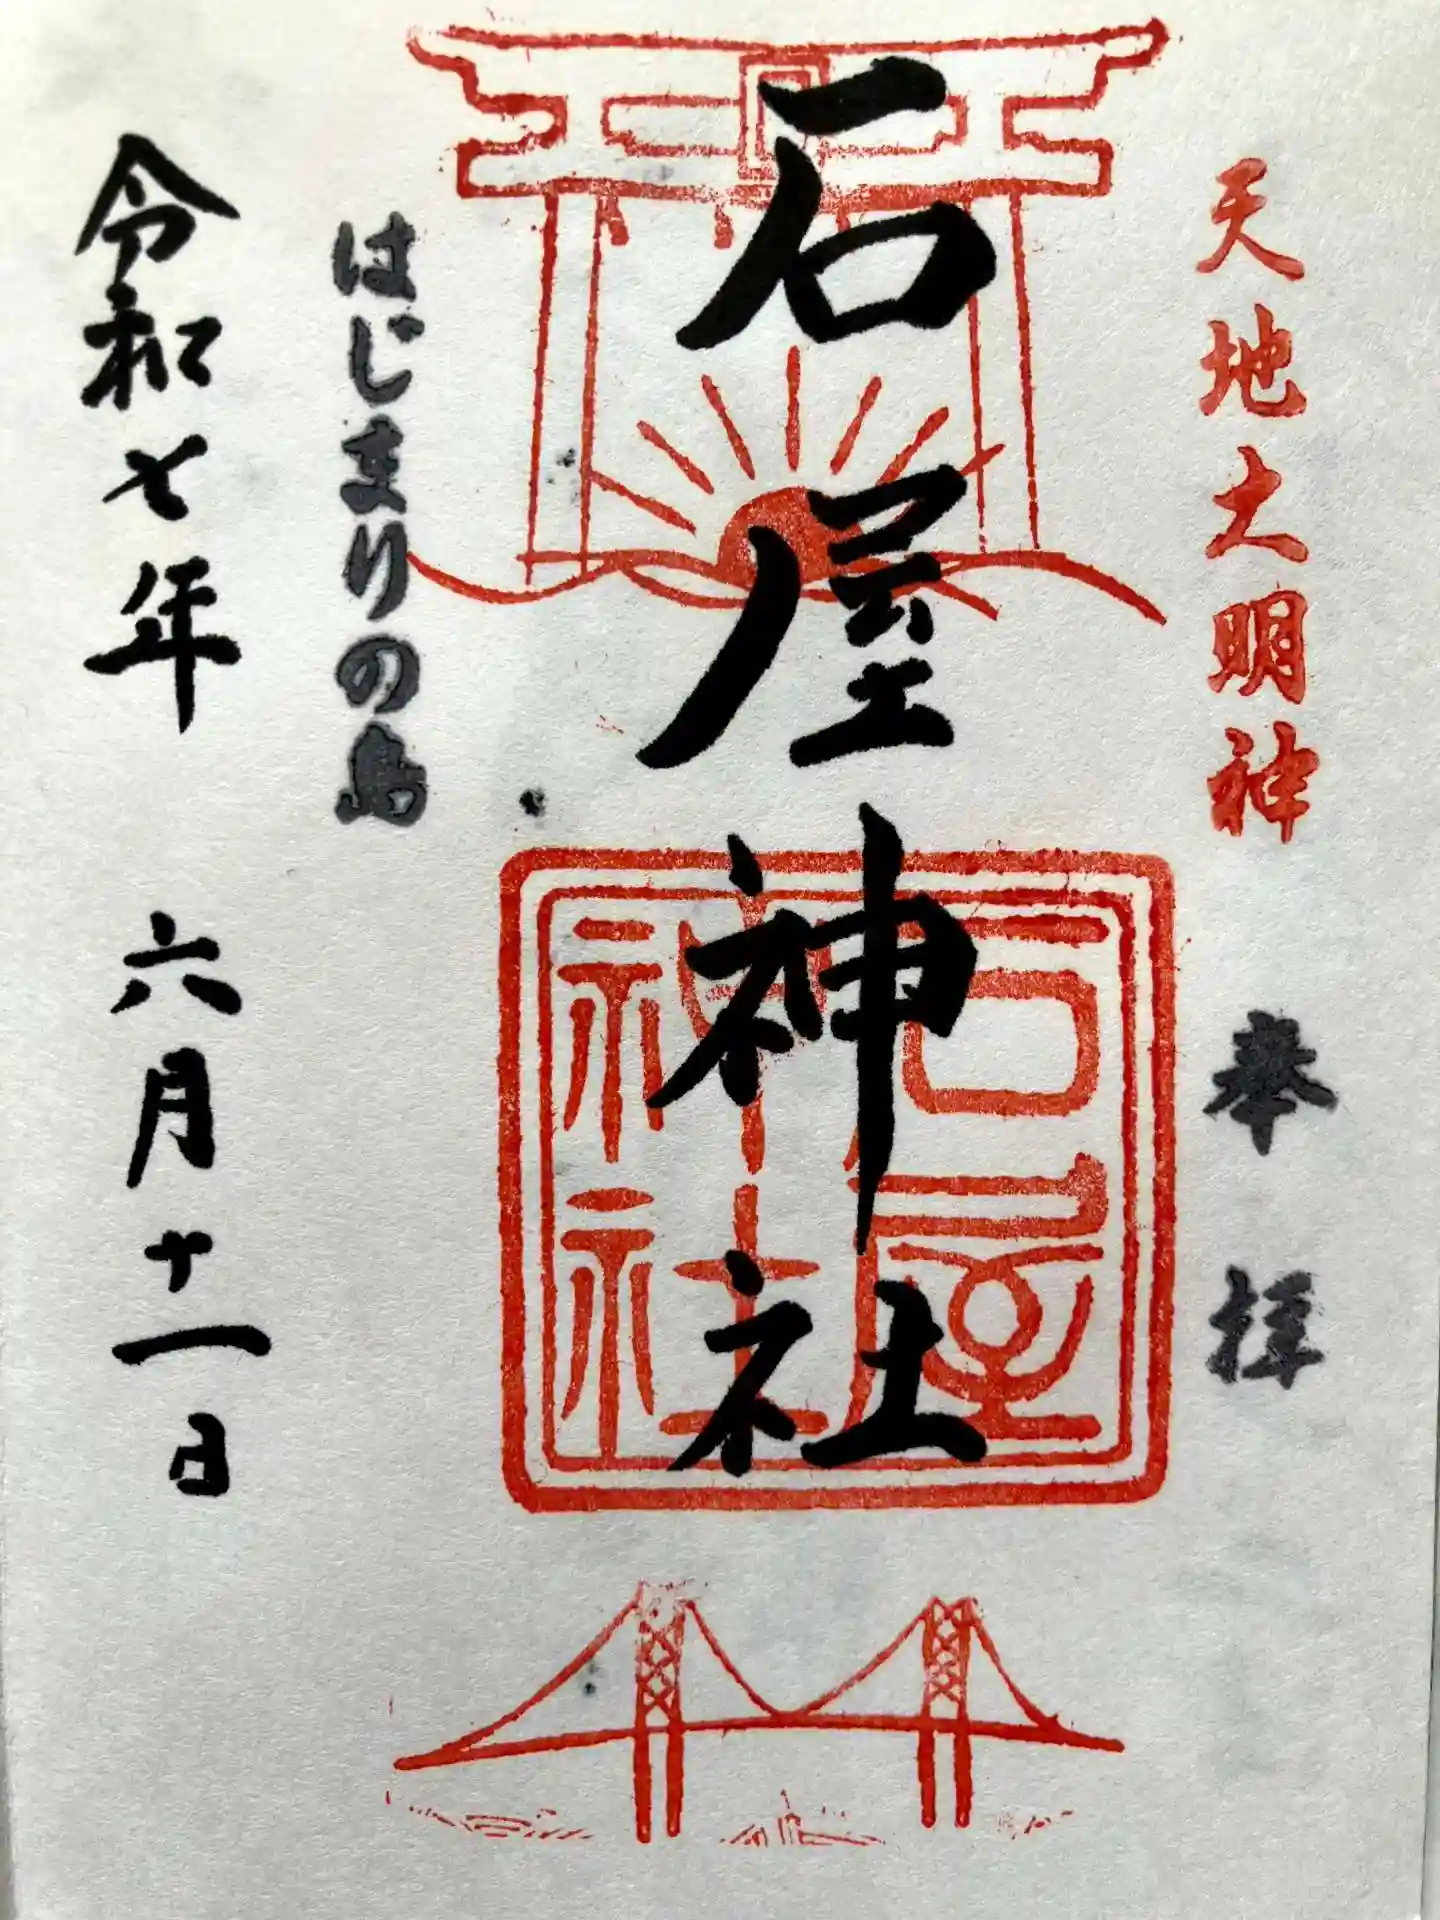 天地大明神
奉拝
石屋神社
石屋
神社
はじまりの島
令和七年 六月十一日